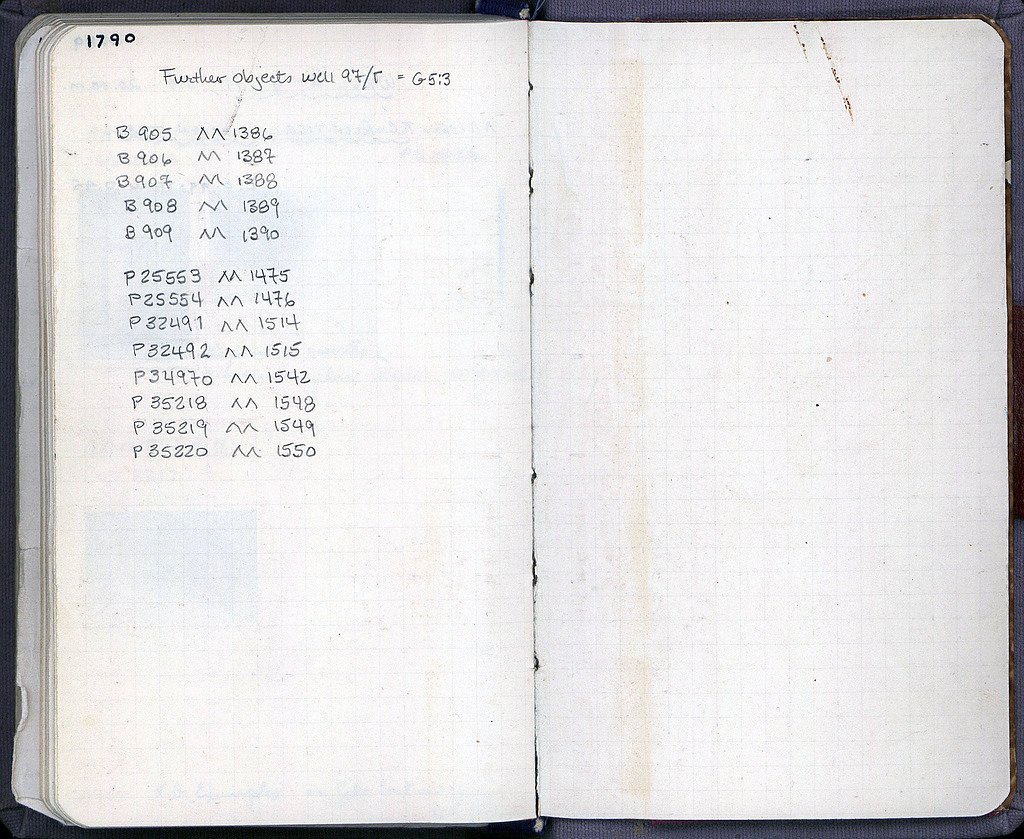 1790
Further objects well 97/Γ = G 5:3
B 905 ΛΛ 1386
B 906 ΛΛ 1387
B 907 ΛΛ 1388
B 908 ΛΛ 1389
B 909 ΛΛ 1390
P 25553 ΛΛ 1475
P 25554 ΛΛ 1476
P 32491 ΛΛ 1514
P 32492 ΛΛ 1515
P 34970 ΛΛ 1542
P 35218 ΛΛ 1548
P 35219 ΛΛ 1549
P 35220 ΛΛ 1550